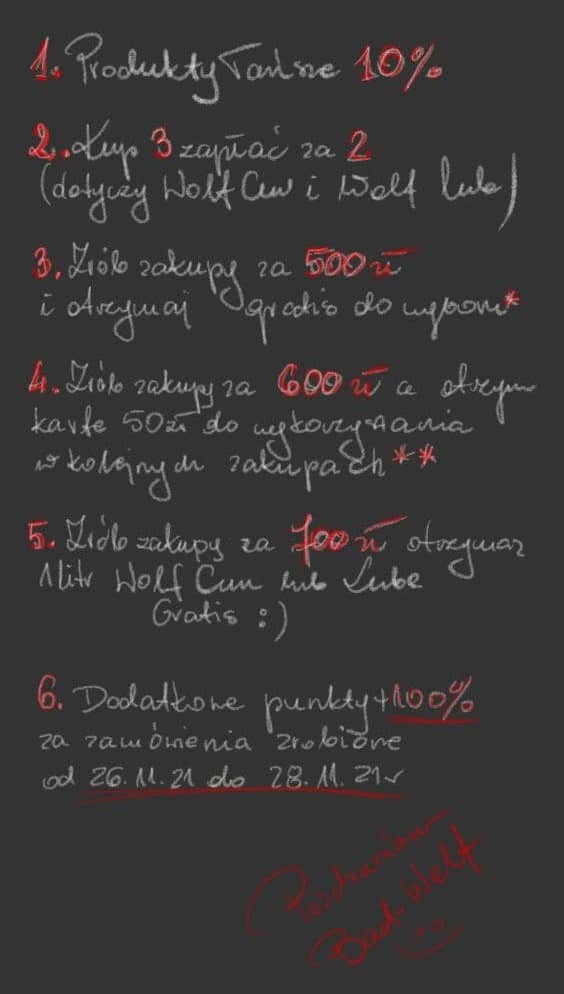 1. Produkty Tańsze 10%
2. Kup 3 zapłać za 2
(dotyczy Wolf Cum i Wolf lube)
3. Zrób zakupy za 500 zł
i otrzymaj gratis do wyboru*
4. Zrób zakupy za 600 zł a otrzym
kartę 50zł do wykorzystania
w kolejnych zakupach**
5. Zrób zakupy za 700 zł otrzymasz
1 litr Wolf Cum lub Lube
Gratis :)
6. Dodatkowe punkty +100%
za zamówienia zrobione
od 26.11.21 do 28.11.21r
Pozdrawiam
Bad Wolf